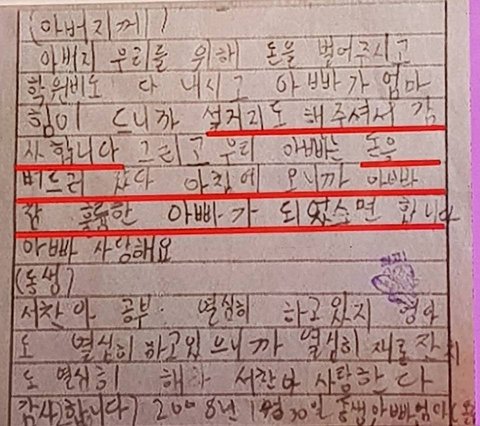 (아버지께)
아버지 우리를 위해 돈을 벌어주시고
학원비도 다 내시고 아빠가 엄마
힘이 드니까 설거지도 해주셔서 감
사합니다 그리고 우리 아빠는 돈을
버드러 갔다 아침에 오니까 아빠
훌륭한 아빠가 되었으면 합니다
아빠 사랑해요
(동생)
서찬아 공부 열심히 하고있지 형아
도 열심히 하고있으니까 열심히
도 열심히 서찬아 사랑한다
감사합니다 2008년 30일 동생아빠엄마